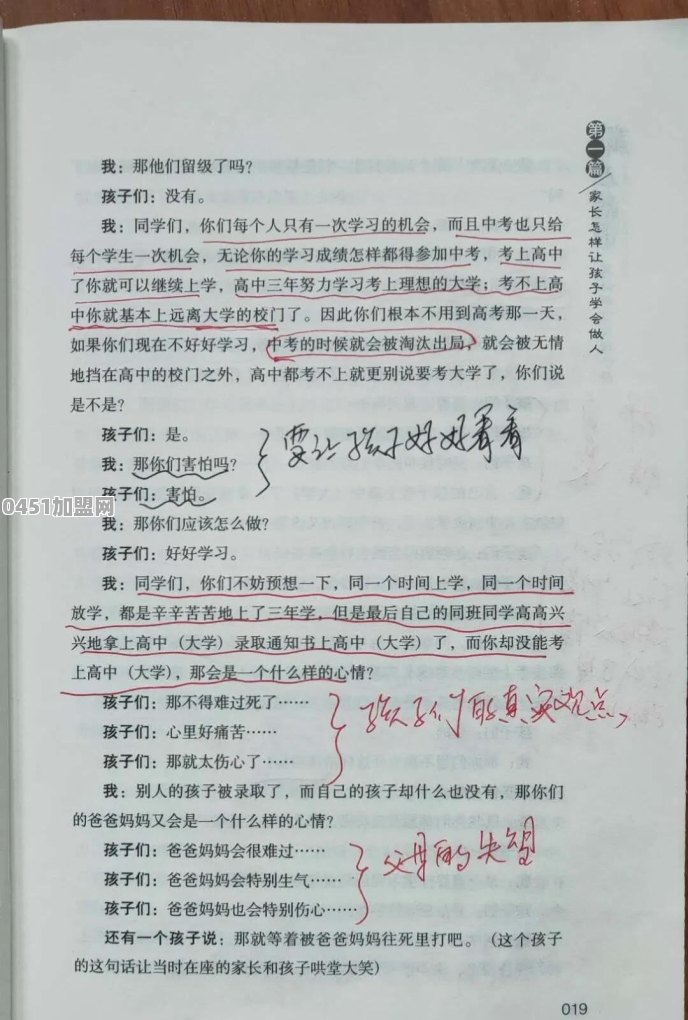 第一篇/家长怎样让孩子学会做人
我：那他们留级了吗？
孩子们：没有。
我：同学们，你们每个人只有一次学习的机会，而且中考也只给
每个学生一次机会，无论你的学习成绩怎样都得参加中考，考上高中
了你就可以继续上学，高中三年努力学习考上理想的大学；考不上高
中你就基本上远离大学的校门了。因此你们根本不用到高考那一天，
如果你们现在不好好学习，中考的时候就会被淘汰出局，就会被无情
地挡在高中的校门之外，高中都考不上就更别说要考大学了，你们说
是不是？
孩子们：是。
我：那你们害怕吗？
孩子们：害怕。
要让孩子好好看看
0451加盟网
我：那你们应该怎么做？
孩子们：好好学习。
我：同学们，你们不妨预想一下，同一个时间上学，同一个时间
放学，都是辛辛苦苦地上了三年学，但是最后自己的同班同学高高兴
兴地拿上高中（大学）录取通知书上高中（大学）了，而你却没能考
上高中（大学），那会是一个什么样的心情？
孩子们：那不得难过死了……
孩子们：心里好痛苦……
孩子们：那就太伤心了……
孩子们的真实观点，
我：别人的孩子被录取了，而自己的孩子却什么也没有，那你们
的爸爸妈妈又会是一个什么样的心情？
孩子们：爸爸妈妈会很难过……
孩子们：爸爸妈妈会特别生气……
孩子们：爸爸妈妈也会特别伤心……
父母的失望
还有一个孩子说：那就等着被爸爸妈妈往死里打吧。（这个孩子
的这句话让当时在座的家长和孩子哄堂大笑）
019